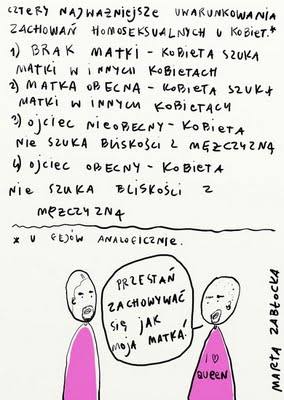 CZTERY NAJWAŻNIEJSZE UWARUNKOWANIA
ZACHOWAŃ HOMOSEKSUALNYCH U KOBIET.*
1) BRAK MATKI - KOBIETA SZUKA
MATKI W INNYCH KOBIETACH
2) MATKA OBECNA - KOBIETA SZUKA
MATKI W INNYCH KOBIETACH
3) OJCIEC NIEOBECNY - KOBIETA
NIE SZUKA BLISKOŚCI Z MĘŻCZYZNĄ
4) OJCIEC OBECNY - KOBIETA
NIE SZUKA BLISKOŚCI Z
MĘŻCZYZNĄ
* U GEJÓW ANALOGICZNIE.
PRZESTAŃ
ZACHOWYWAĆ
SIĘ JAK
MOJA MATKA!
I ♡
QUEEN
MARTA ZABŁOCKA